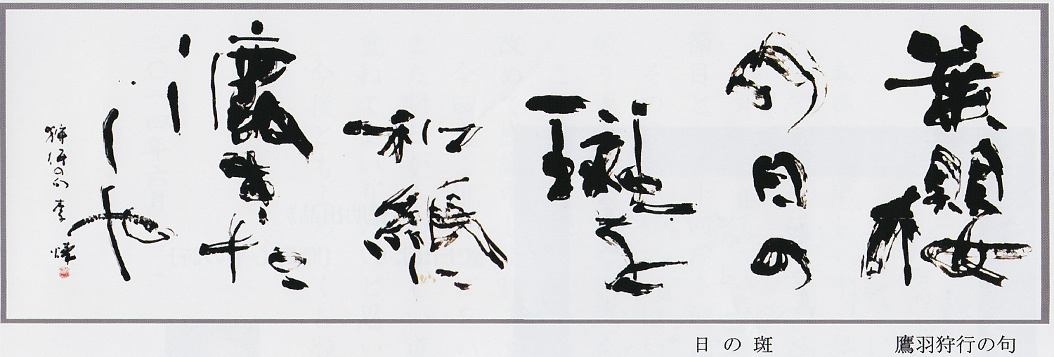 葉櫻
の日の
斑を
和紙に
漉きた
しや
狩行の句
日の斑
鷹羽狩行の句